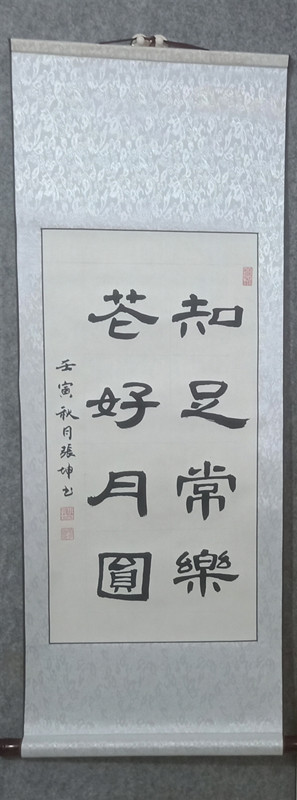 知足常樂
花好月圓
壬寅秋月張坤书